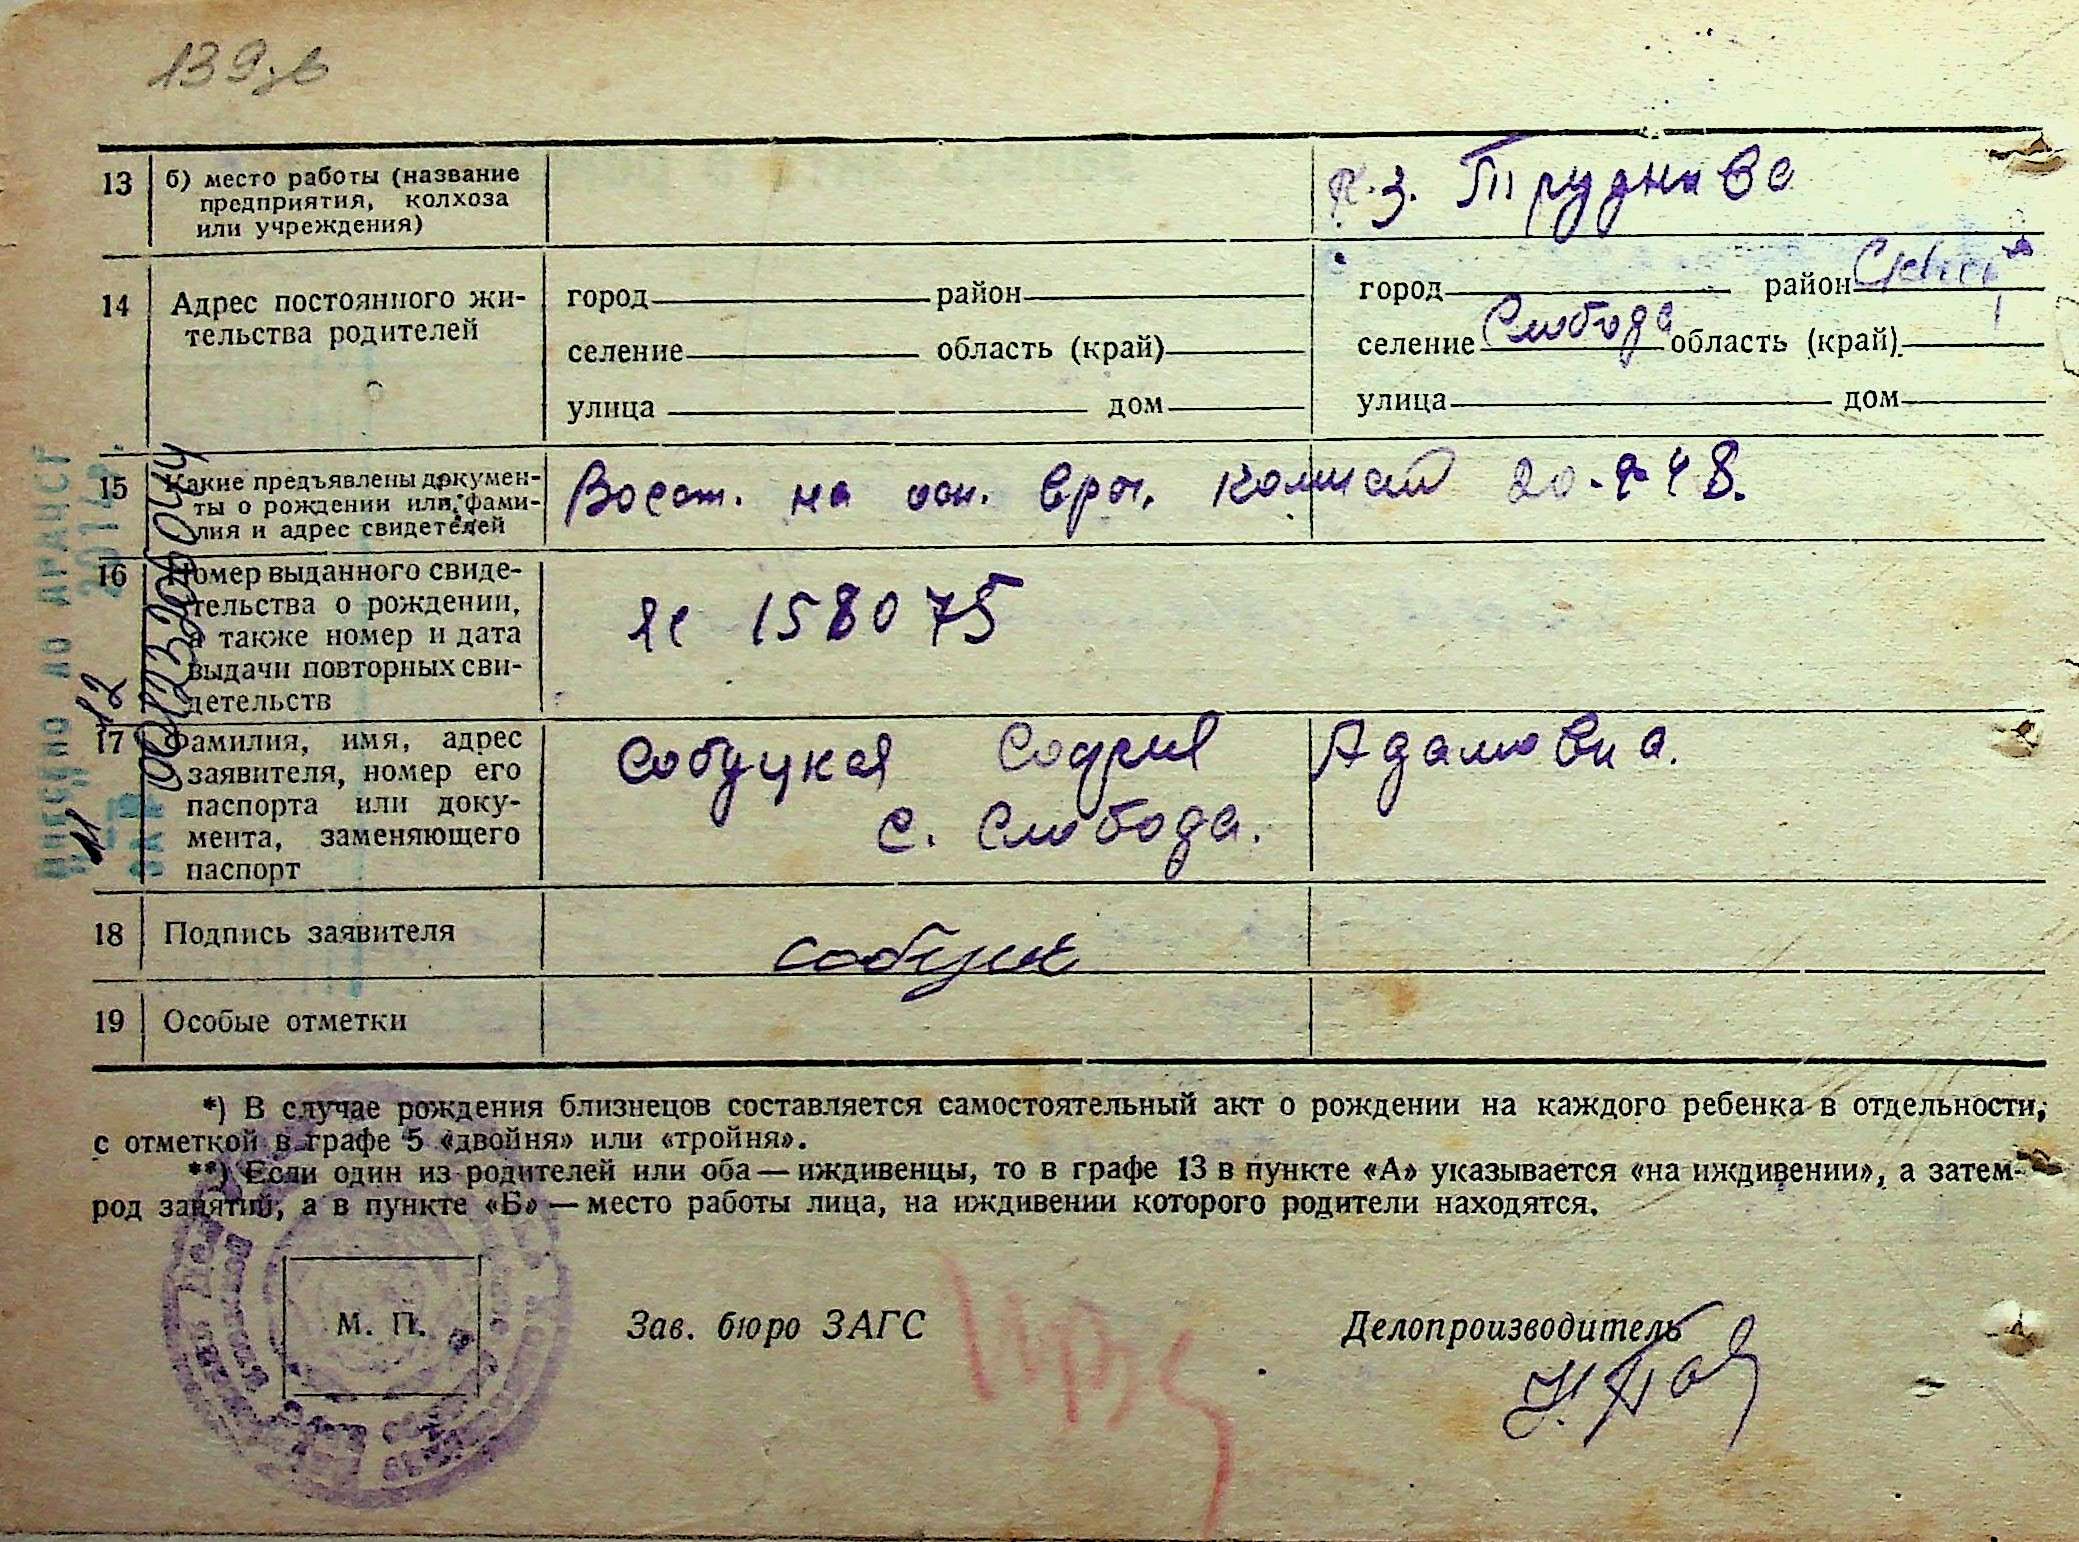 139зв
13 б) место работы (название
предприятия, колхоза
или учреждения)
К. З. Труднава
14 Адрес постоянного жи-
тельства родителей
город район город район
селение область (край) селение Слобода область (край)
улица дом улица дом
15 Какие предъявлены докумен-
ты о рождении или фами-
лия и адрес свидетелей
Восст. на осн. врач. 20.
16 Номер выданного свиде-
тельства о рождении,
а также номер и дата
выдачи повторных сви-
детельств
158075
17 Фамилия, имя, адрес
заявителя, номер его
паспорта или доку-
мента, заменяющего
паспорт
Собуцкая София Адамовна.
с. Слобода.
18 Подпись заявителя
19 Особые отметки
*) В случае рождения близнецов составляется самостоятельный акт о рождении на каждого ребенка в отдельности,
с отметкой в графе 5 «двойня» или «тройня».
**) Если один из родителей или оба — иждивенцы, то в графе 13 в пункте «А» указывается «на иждивении», а затем-
род занятий, а в пункте «Б» — место работы лица, на иждивении которого родители находятся.
М. П. Зав. бюро ЗАГС Делопроизводитель